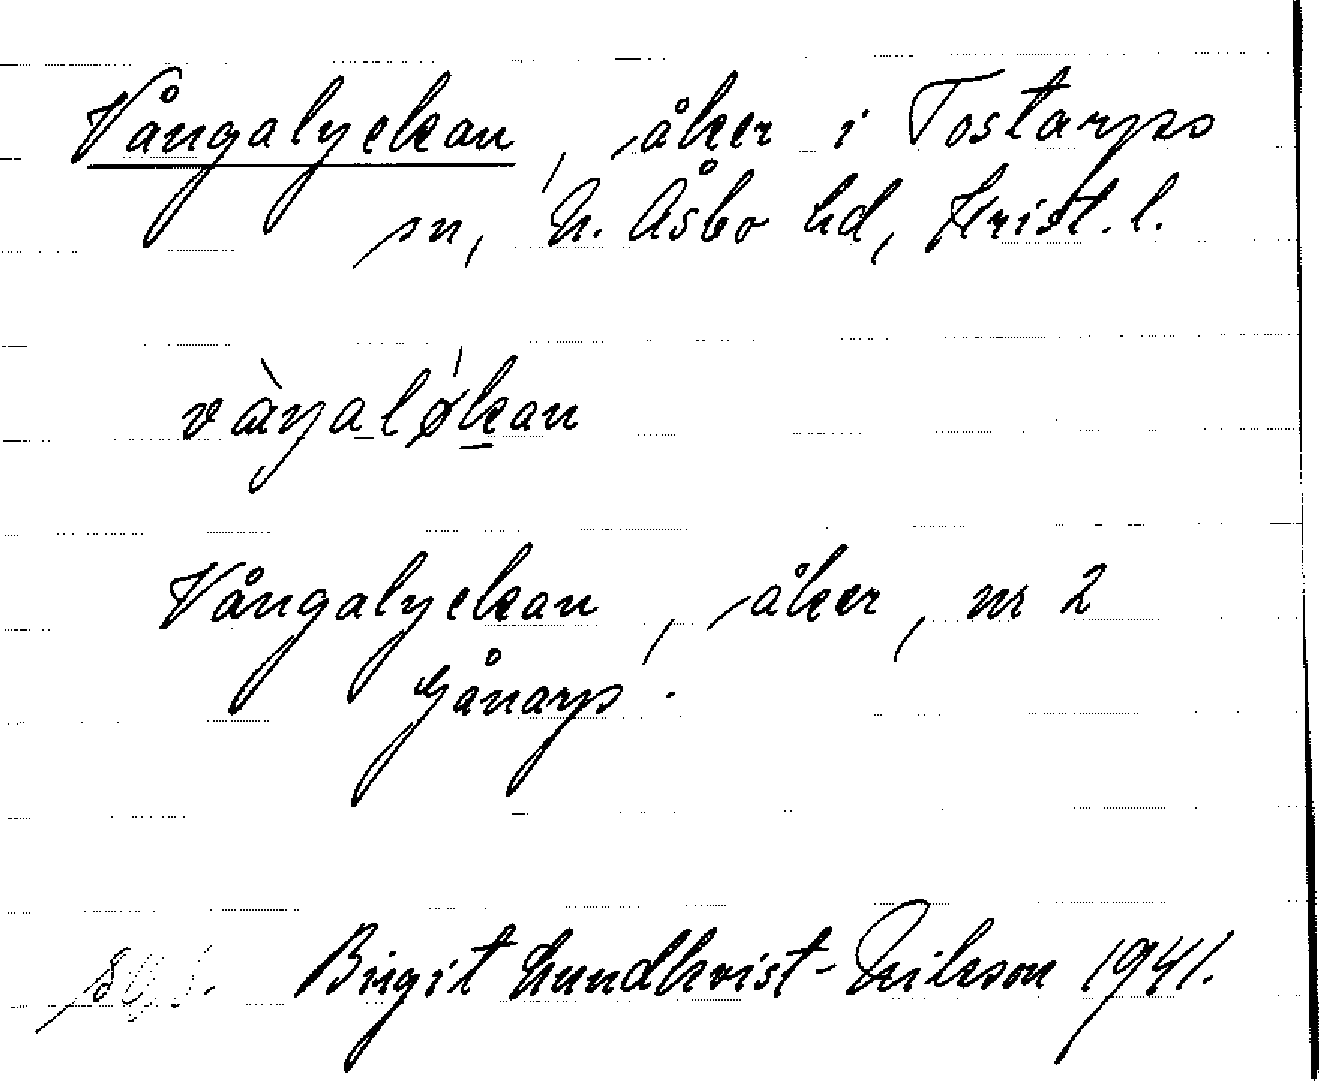 Vångalyckan, åker i Tostarps
sn, N. Åsbo hd, Krist. l.
vàŋaløkan
Vångalyckan, åker, nr 2
Gånarp.
Birgit Lundkvist-Nilsson 1941.